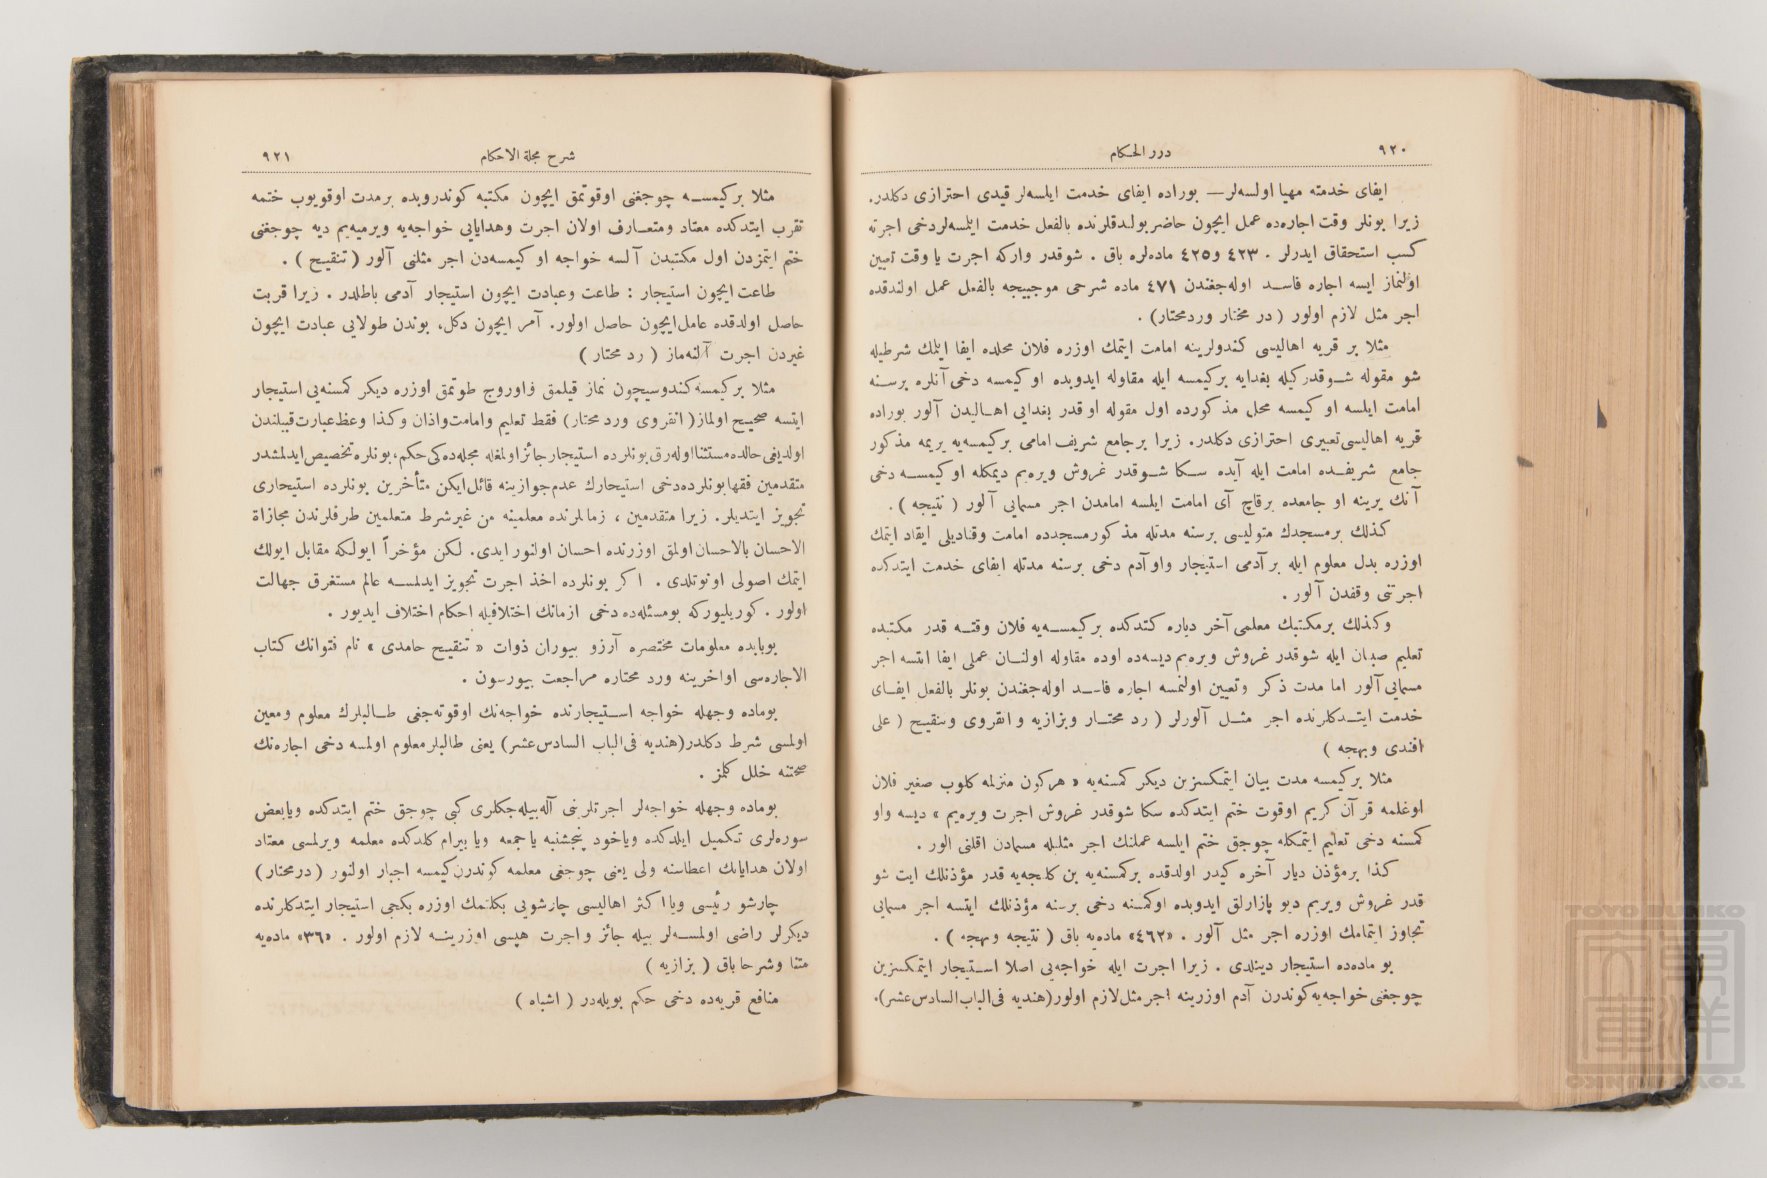 ٩٢٠
درر الحكام
ايفای خدمته مهيا اولسه‌لر — بوراده ايفای خدمت ايلسه‌لر قيدی احترازی دكلدر.
زيرا بونلر وقت اجاره‌ده عمل ايچون حاضر بولندقلرنده بالفعل خدمت ايتلمسه‌لردخی اجرته
كسب استحقاق ايدرلر . ٤٢٣ و٤٢٥ ماده‌لره باق . شوقدر واركه اجرت يا وقت تعيين
اولنماز ايسه اجاره فاسد اوله‌جغندن ٤٧١ ماده شرحی موجبيجه بالفعل عمل اولندقده
اجر مثل لازم اولور ( در مختار وردمحتار) .
مثلا بر قريه اهاليسی كندولرينه امامت ايتمك اوزره فلان محلده ايفا ايلمك شرطيله
شو مقوله شوقدر كيله بغدايه بركيمسه ايله مقاوله ايدوبده او كيمسه دخی آنلره برسنه
امامت ايلسه او كيمسه محل مذكورده اول مقوله او قدر بغدايی اهاليدن آلور بوراده
قريه اهاليسی تعبيری احترازی دكلدر. زيرا بر جامع شريف امامی بركيمسه‌يه يريمه مذكور
جامع شريفده امامت ايله آيده سكا شوقدر غروش ويره‌يم ديمكله او كيمسه دخی
آنك يرينه او جامعده برقاچ آی امامت ايلسه امامدن اجر مسمايی آلور ( نتيجه ) .
كذلك برمسجدك متوليسی برسنه مدتله مذكورمسجدده امامت وقناديلی ايقاد ايتمك
اوزره بدل معلوم ايله بر آدمی استيجار واو آدم دخی برسنه مدتله ايفای خدمت ايتدكده
اجرتنی وقفدن آلور .
وكذلك برمكتبك معلمی آخر دياره كتدكده بركيمسه‌يه فلان وقته قدر مكتبده
تعليم صبيان ايله شوقدر غروش ويره‌يم ديسه‌ده اوده مقاوله اولنان عملی ايفا ايتسه اجر
مسمايی آلور اما مدت ذكر وتعيين اولنمسه اجاره فاسد اوله‌جغندن بونلر بالفعل ايفای
خدمت ايتدكلرنده اجر مثل آلورلر ( رد محتار وبزازيه و انقروی وتنقيح ( علی
افندی وبهجه )
مثلا بركيمسه مدت بيان ايتمكسزين ديكر كمسنه‌يه « هركون منزلمه كلوب صغير فلان
اوغلمه قرآن كريم اوقوت ختم ايتدكده سكا شوقدر غروش اجرت ويره‌يم » ديسه واو
كمسنه دخی تعليم ايتمكله چوجق ختم ايلسه عملنك اجر مثليله مسمادن اقلنی الور .
كذا برمؤذن ديار آخره كيدر اولدقده بركمسنه‌يه بن كلنجه‌يه قدر مؤذنلك ايت شو
قدر غروش ويريم ديو پازارلق ايدوبده اوكمسنه دخی برسنه مؤذنلك ايتسه اجر مسمايی
تجاوز ايتمامك اوزره اجر مثل آلور . «٤٦٢» ماده‌يه باق ( نتيجه وبهجه ) .
بو ماده‌ده استيجار دينلدی . زيرا اجرت ايله خواجه‌يی اصلا استيجار ايتمكسزين
چوجغنی خواجه‌يه كوندرن آدم اوزرينه اجر مثل لازم اولور(هنديه فی الباب السادس عشر).
٩٢١
شرح مجلة الاحكام
مثلا بركيمسه چوجغنی اوقوتمق ايچون مكتبه كوندروبده برمدت اوقويوب ختمه
تقرب ايتدكده معتاد ومتعارف اولان اجرت وهدايايی خواجه‌يه ويرميه‌يم ديه چوجغنی
ختم ايتمزدن اول مكتبدن آلسه خواجه او كيمسه‌دن اجر مثلنی آلور ( تنقيح ) .
طاعت ايچون استيجار : طاعت وعبادت ايچون استيجار آدمی باطلدر . زيرا قربت
حاصل اولدقده عامل ايچون حاصل اولور. آمر ايچون دكل، بوندن طولايی عبادت ايچون
غيردن اجرت آلنه‌ماز ( رد محتار )
مثلا بركيمسه كندوسيچون نماز قيلمق واوروج طوتمق اوزره ديكر كمسنه‌يی استيجار
ايتسه صحيح اولماز( انقروی ورد محتار) فقط تعليم وامامت واذان وكذا وعظ عبارت قبيلندن
اولديغی حالده مستثنا اوله‌رق بونلرده استيجار جائز اولمغله مجله‌ده‌كی حكم، بونلره تخصيص ايدلمشدر
متقدمين فقها بونلرده‌دخی استيجارك عدم جوازينه قائل ايكن متأخرين بونلرده استيجاری
تجويز ايتديلر. زيرا متقدمين ، زمانلرنده معلمينه من غير شرط متعلمين طرفلرندن مجازاة
الاحسان بالاحسان اولمق اوزرنده احسان اولنور ايدی. لكن مؤخراً ايولكه مقابل ايولك
ايتمك اصولی اونوتلدی . اكر بونلرده اخذ اجرت تجويز ايدلمسه عالم مستغرق جهالت
اولور . كوريليوركه بومسئله‌ده دخی ازمانك اختلافيله احكام اختلاف ايديور .
بوبابده معلومات مختصره آرزو بيوران ذوات « تنقيح حامدی » نام فتوانك كتاب
الاجاره‌سی اواخرينه ورد محتاره مراجعت بيورسون .
بوماده وجهله خواجه استيجارنده خواجه‌نك اوقوته‌جغی طالبلرك معلوم ومعين
اولمسی شرط دكلدر(هنديه فی الباب السادس عشر) يعنی طالبلر معلوم اولمسه دخی اجاره‌نك
صحتنه خلل كلمز .
بوماده وجهله خواجه‌لر اجرتلرينی آله‌بيله‌جكلری كبی چوجق ختم ايتدكده ويابعض
سوره‌لری تكميل ايلدكده وياخود پنجشنبه ياجمعه ويا بيرام كلدكده معلمه ويرلمسی معتاد
اولان هدايانك اعطاسنه ولی يعنی چوجغی معلمه كوندرن كيمسه اجبار اولنور (درمختار)
چارشو رئيسی ويا اكثر اهاليسی چارشويی بكلتمك اوزره بكجی استيجار ايتدكلرنده
ديكرلر راضی اولمسه‌لر بيله جائز و اجرت هپسی اوزرينه لازم اولور . «٣٦» ماده‌يه
متنا وشرحا باق ( بزازيه )
منافع قريه‌ده دخی حكم بويله‌در ( اشباه )
TOYO BUNKO